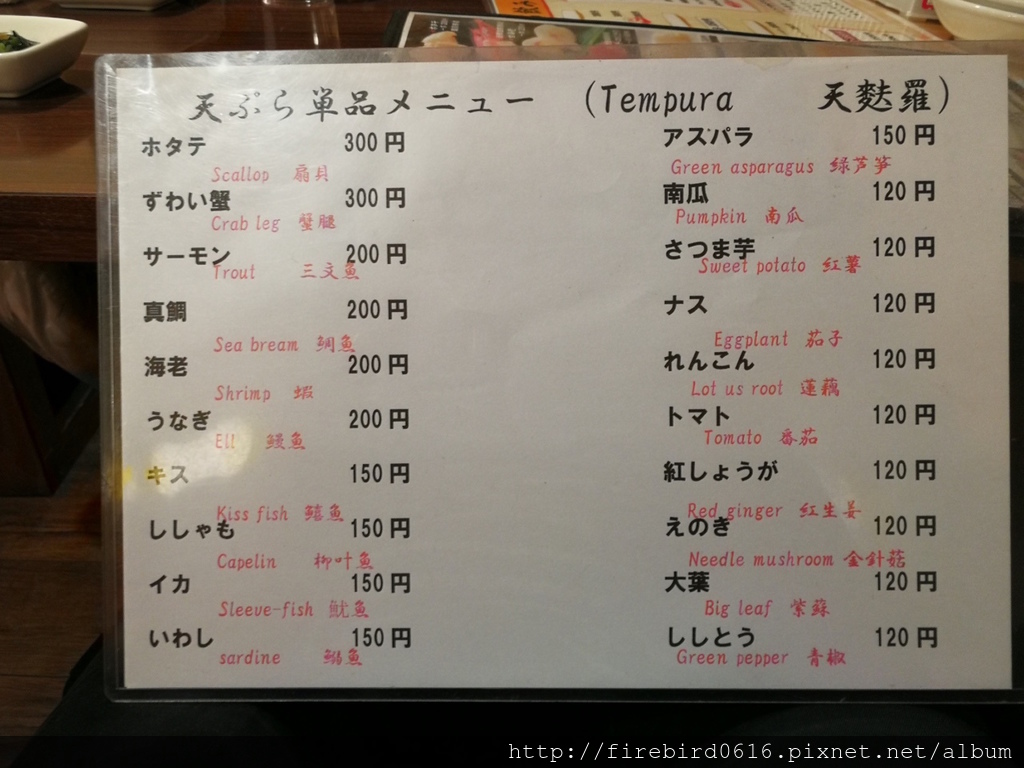 天ぷら単品メニュー (Tempura 天麩羅)
ホタテ 300円
Scallop 扇貝
ずわい蟹 300円
Crab leg 蟹腿
サーモン 200円
Trout 三文魚
真鯛 200円
Sea bream 鯛魚
海老 200円
Shrimp 蝦
うなぎ 200円
Ell 鰻魚
キス 150円
Kiss fish 鱚魚
ししゃも 150円
Capelin 柳叶魚
イカ 150円
Sleeve-fish 魷魚
いわし 150円
sardine 鰯魚
アスパラ 150円
Green asparagus 绿芦笋
南瓜 120円
Pumpkin 南瓜
さつま芋 120円
Sweet potato 红薯
ナス 120円
Eggplant 茄子
れんこん 120円
Lot us root 蓮藕
トマト 120円
Tomato 番茄
紅しょうが 120円
Red ginger 红生姜
えのき 120円
Needle mushroom 金針菇
大葉 120円
Big leaf 紫蘇
ししとう 120円
Green pepper 青椒
http://firebird0616.pixnet.net/album